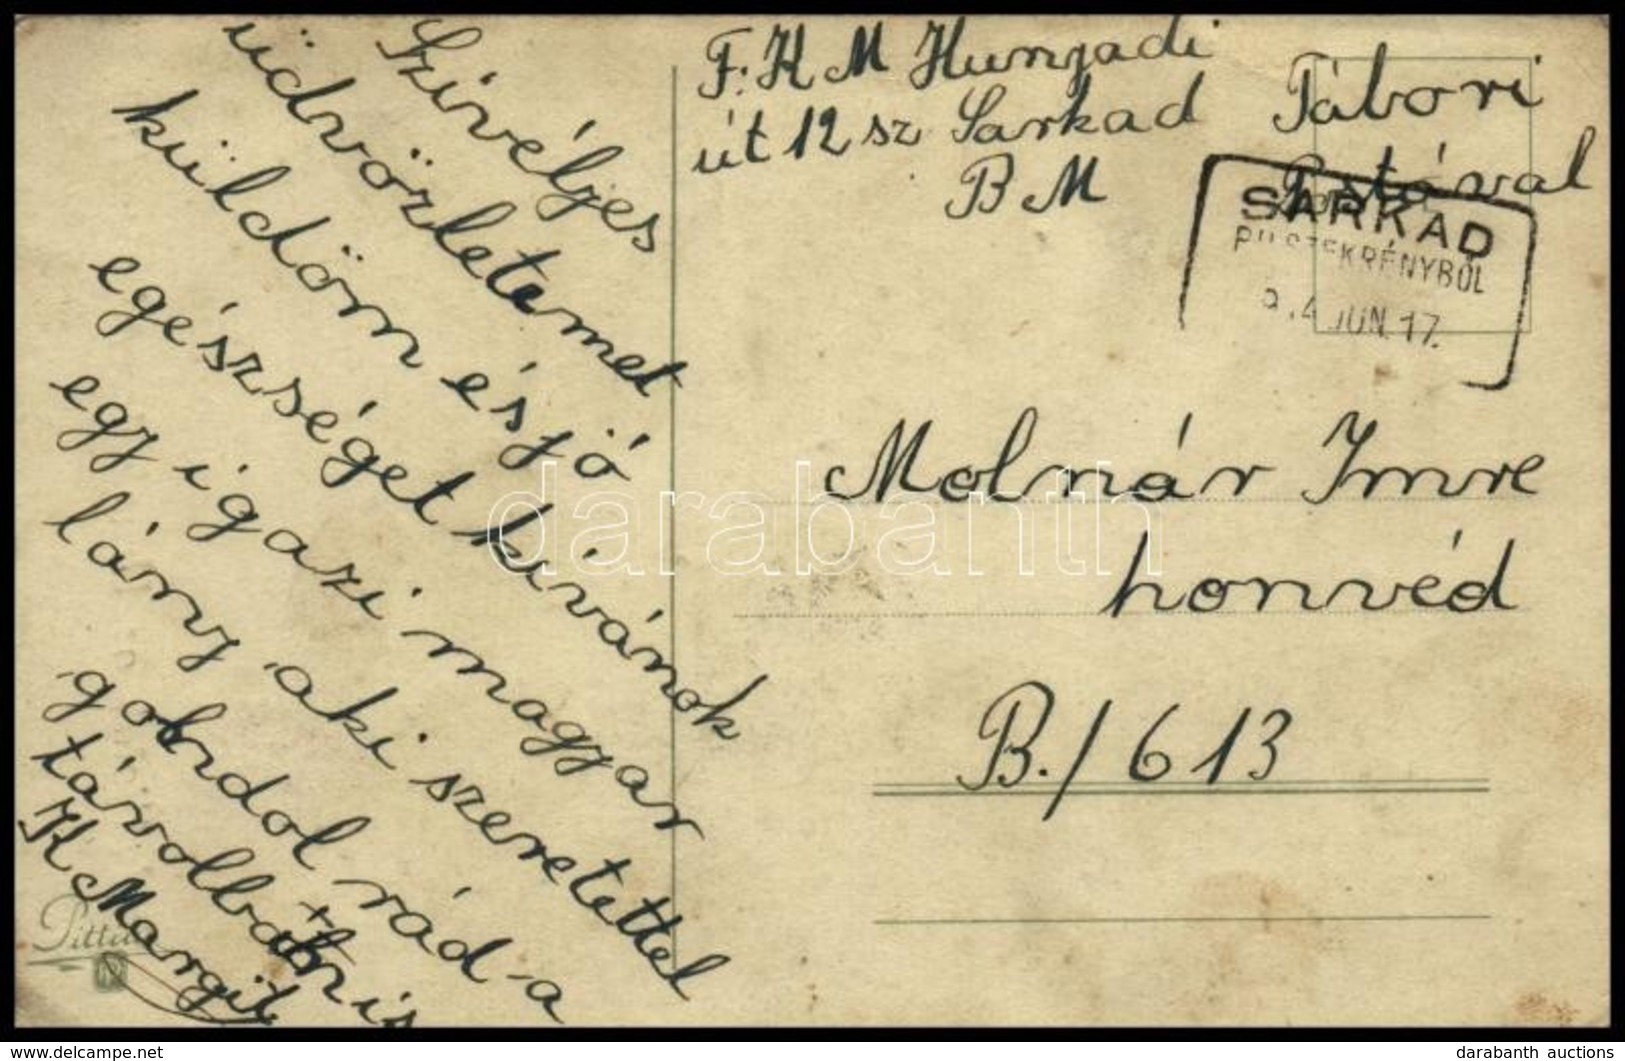 Szívéljes
üdvözletemet
küldöm és jó
egészséget kívánok
egy igazi magyar
lány, aki szeretettel
gondol rád a
távolban is
K Margit
F. K M Hunyadi
út 12 sz Sarkad
B M
Tábori
Postával
SARKAD
SZEKRÉNYBŐL
JUN. 17.
Molnár Imre
honvéd
B./613
darabanth
oldthing.com
darabanth auctions